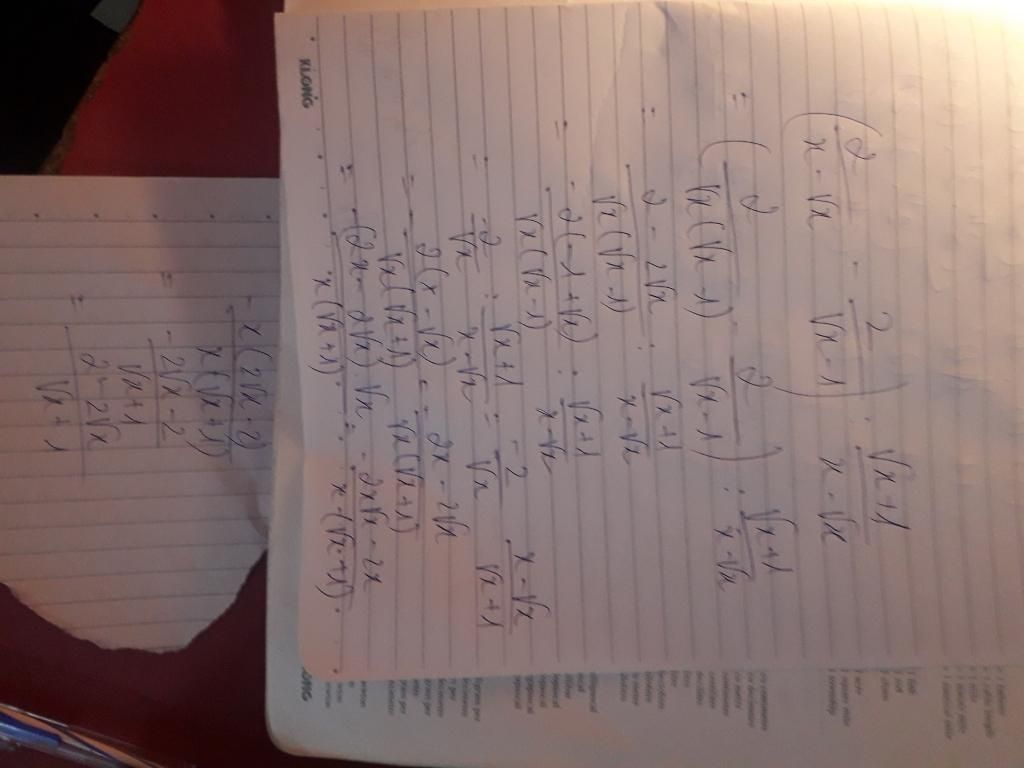 (2/(x - √x) - 2/(√x - 1)) : (√x + 1)/(x - √x)
= (2/(√x(√x - 1)) - 2/(√x - 1)) : (√x + 1)/(x - √x)
= (2 - 2√x)/(√x(√x - 1)) : (√x + 1)/(x - √x)
= - 2(-1 + √x)/(√x(√x - 1)) : (√x + 1)/(x - √x)
= - 2/√x : (√x + 1)/(x - √x) = - 2/√x . (x - √x)/(√x + 1)
= - 2(x - √x)/(√x(√x + 1)) = - (2x - 2√x)/(√x(√x + 1))
= - (2x - 2√x).√x/(x(√x + 1)) = - (2x√x - 2x)/(x(√x + 1))
KLONG
ONG
= - x(2√x - 2)/(x(√x + 1))
= - (2√x - 2)/(√x + 1)
= (2 - 2√x)/(√x + 1)